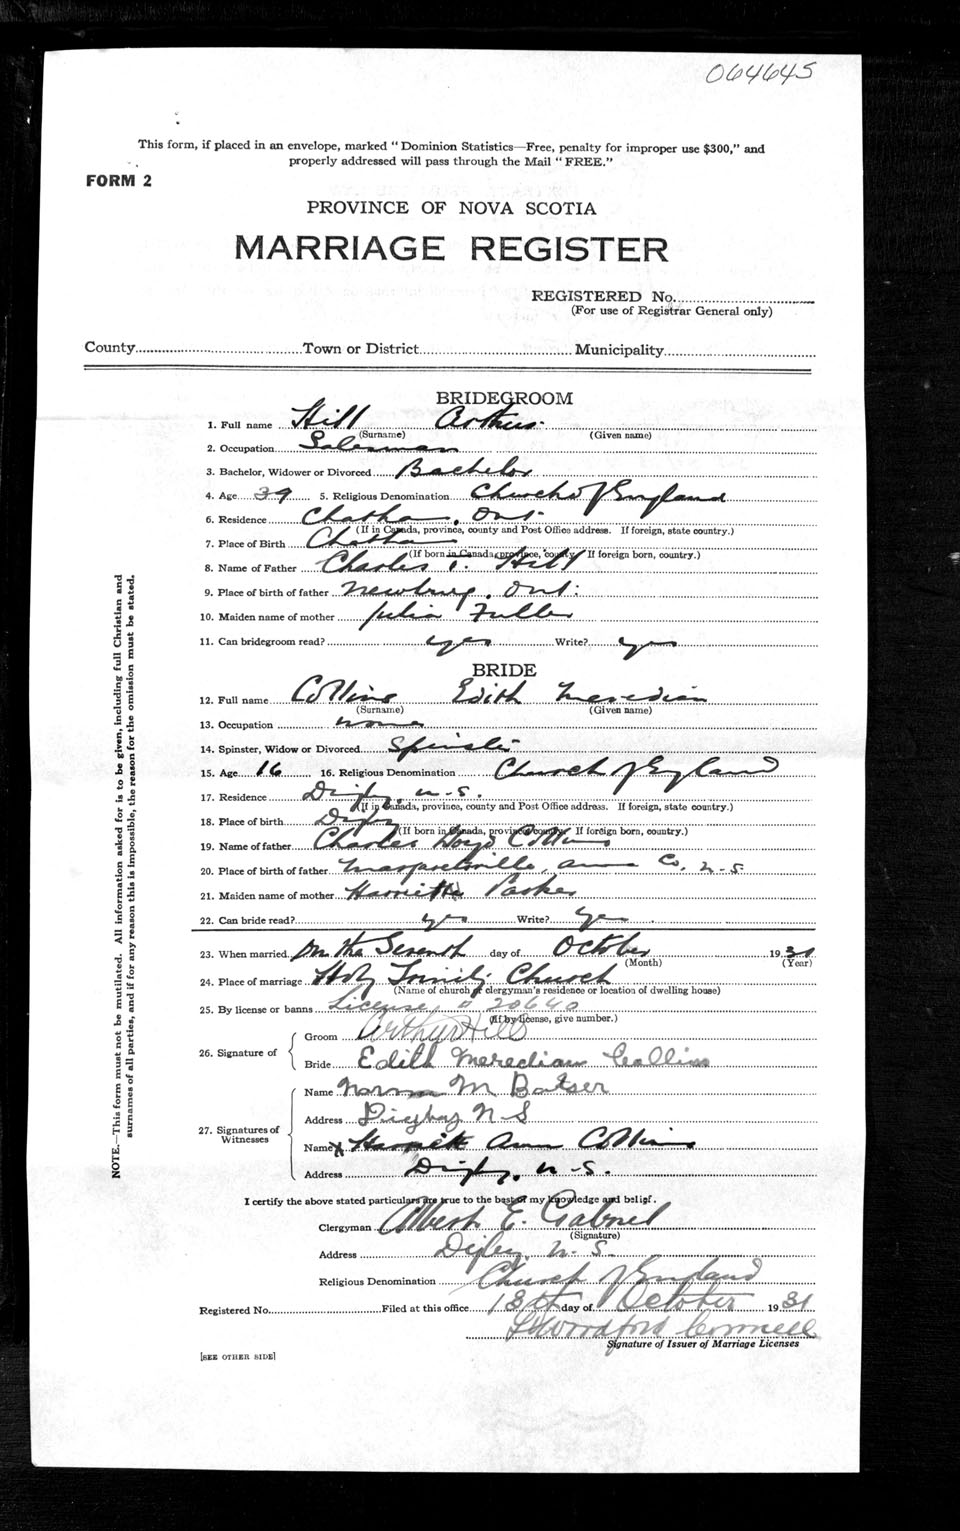 064645
This form, if placed in an envelope, marked "Dominion Statistics—Free, penalty for improper use $300," and
properly addressed will pass through the Mail "FREE."
FORM 2
PROVINCE OF NOVA SCOTIA
MARRIAGE REGISTER
REGISTERED No.
(For use of Registrar General only)
County Town or District Municipality
BRIDEGROOM
1. Full name Hill Arthur
(Surname) (Given name)
2. Occupation Salesman
3. Bachelor, Widower or Divorced Bachelor
4. Age 39 5. Religious Denomination Church of England
6. Residence Chatham, Ont.
(If in Canada, province, county and Post Office address. If foreign, state country.)
7. Place of Birth Chatham
(If born in Canada, province, county. If foreign born, country.)
8. Name of Father Charles Hill
9. Place of birth of father Newburg, Ont.
10. Maiden name of mother Julia Fuller
11. Can bridegroom read? yes Write? yes
BRIDE
12. Full name Collins Edith Meredian
(Surname) (Given name)
13. Occupation none
14. Spinster, Widow or Divorced Spinster
15. Age 16 16. Religious Denomination Church of England
17. Residence Digby, N.S.
(If in Canada, province, county and Post Office address. If foreign, state country.)
18. Place of birth Digby
(If born in Canada, province, county. If foreign born, country.)
19. Name of father Charles Collins
20. Place of birth of father Margaretsville, Ann Co. N.S.
21. Maiden name of mother Harriett Parker
22. Can bride read? yes Write? yes
23. When married On the Seventh day of October 1931
(Month) (Year)
24. Place of marriage Holy Trinity Church
(Name of church or clergyman's residence or location of dwelling house)
25. By license or banns License # 20640
(If by license, give number.)
26. Signature of
Groom Arthur Hill
Bride Edith Meredian Collins
27. Signatures of
Witnesses
Name Norma M Batser
Address Digby N S
Name X Harriett Ann Collins
Address Digby, N.S.
I certify the above stated particulars are true to the best of my knowledge and belief.
Clergyman Albert E. Gabriel
(Signature)
Address Digby, N.S.
Religious Denomination Church of England
Registered No. Filed at this office 13th day of October 1931
Signature of Issuer of Marriage Licenses
[SEE OTHER SIDE]
NOTE.—This form must not be mutilated. All information asked for is to be given, including full Christian and
surnames of all parties, and if for any reason this is impossible, the reason for the omission must be stated.